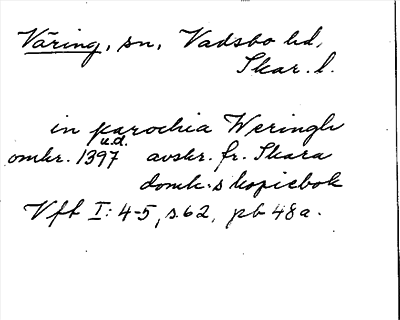 Väring, sn, Vadsbo hd,
Skar. l.
in parochia Weringh
u.d.
omkr. 1397 avskr. fr. Skara
domk:s kopiebok
Vft I: 4-5, s. 62, pb 48a.